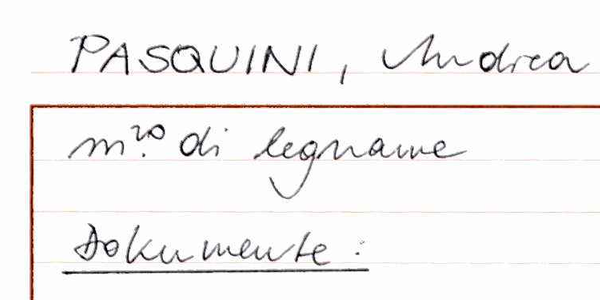 PASQUINI, Andrea
m.ro di legname
Dokumente: